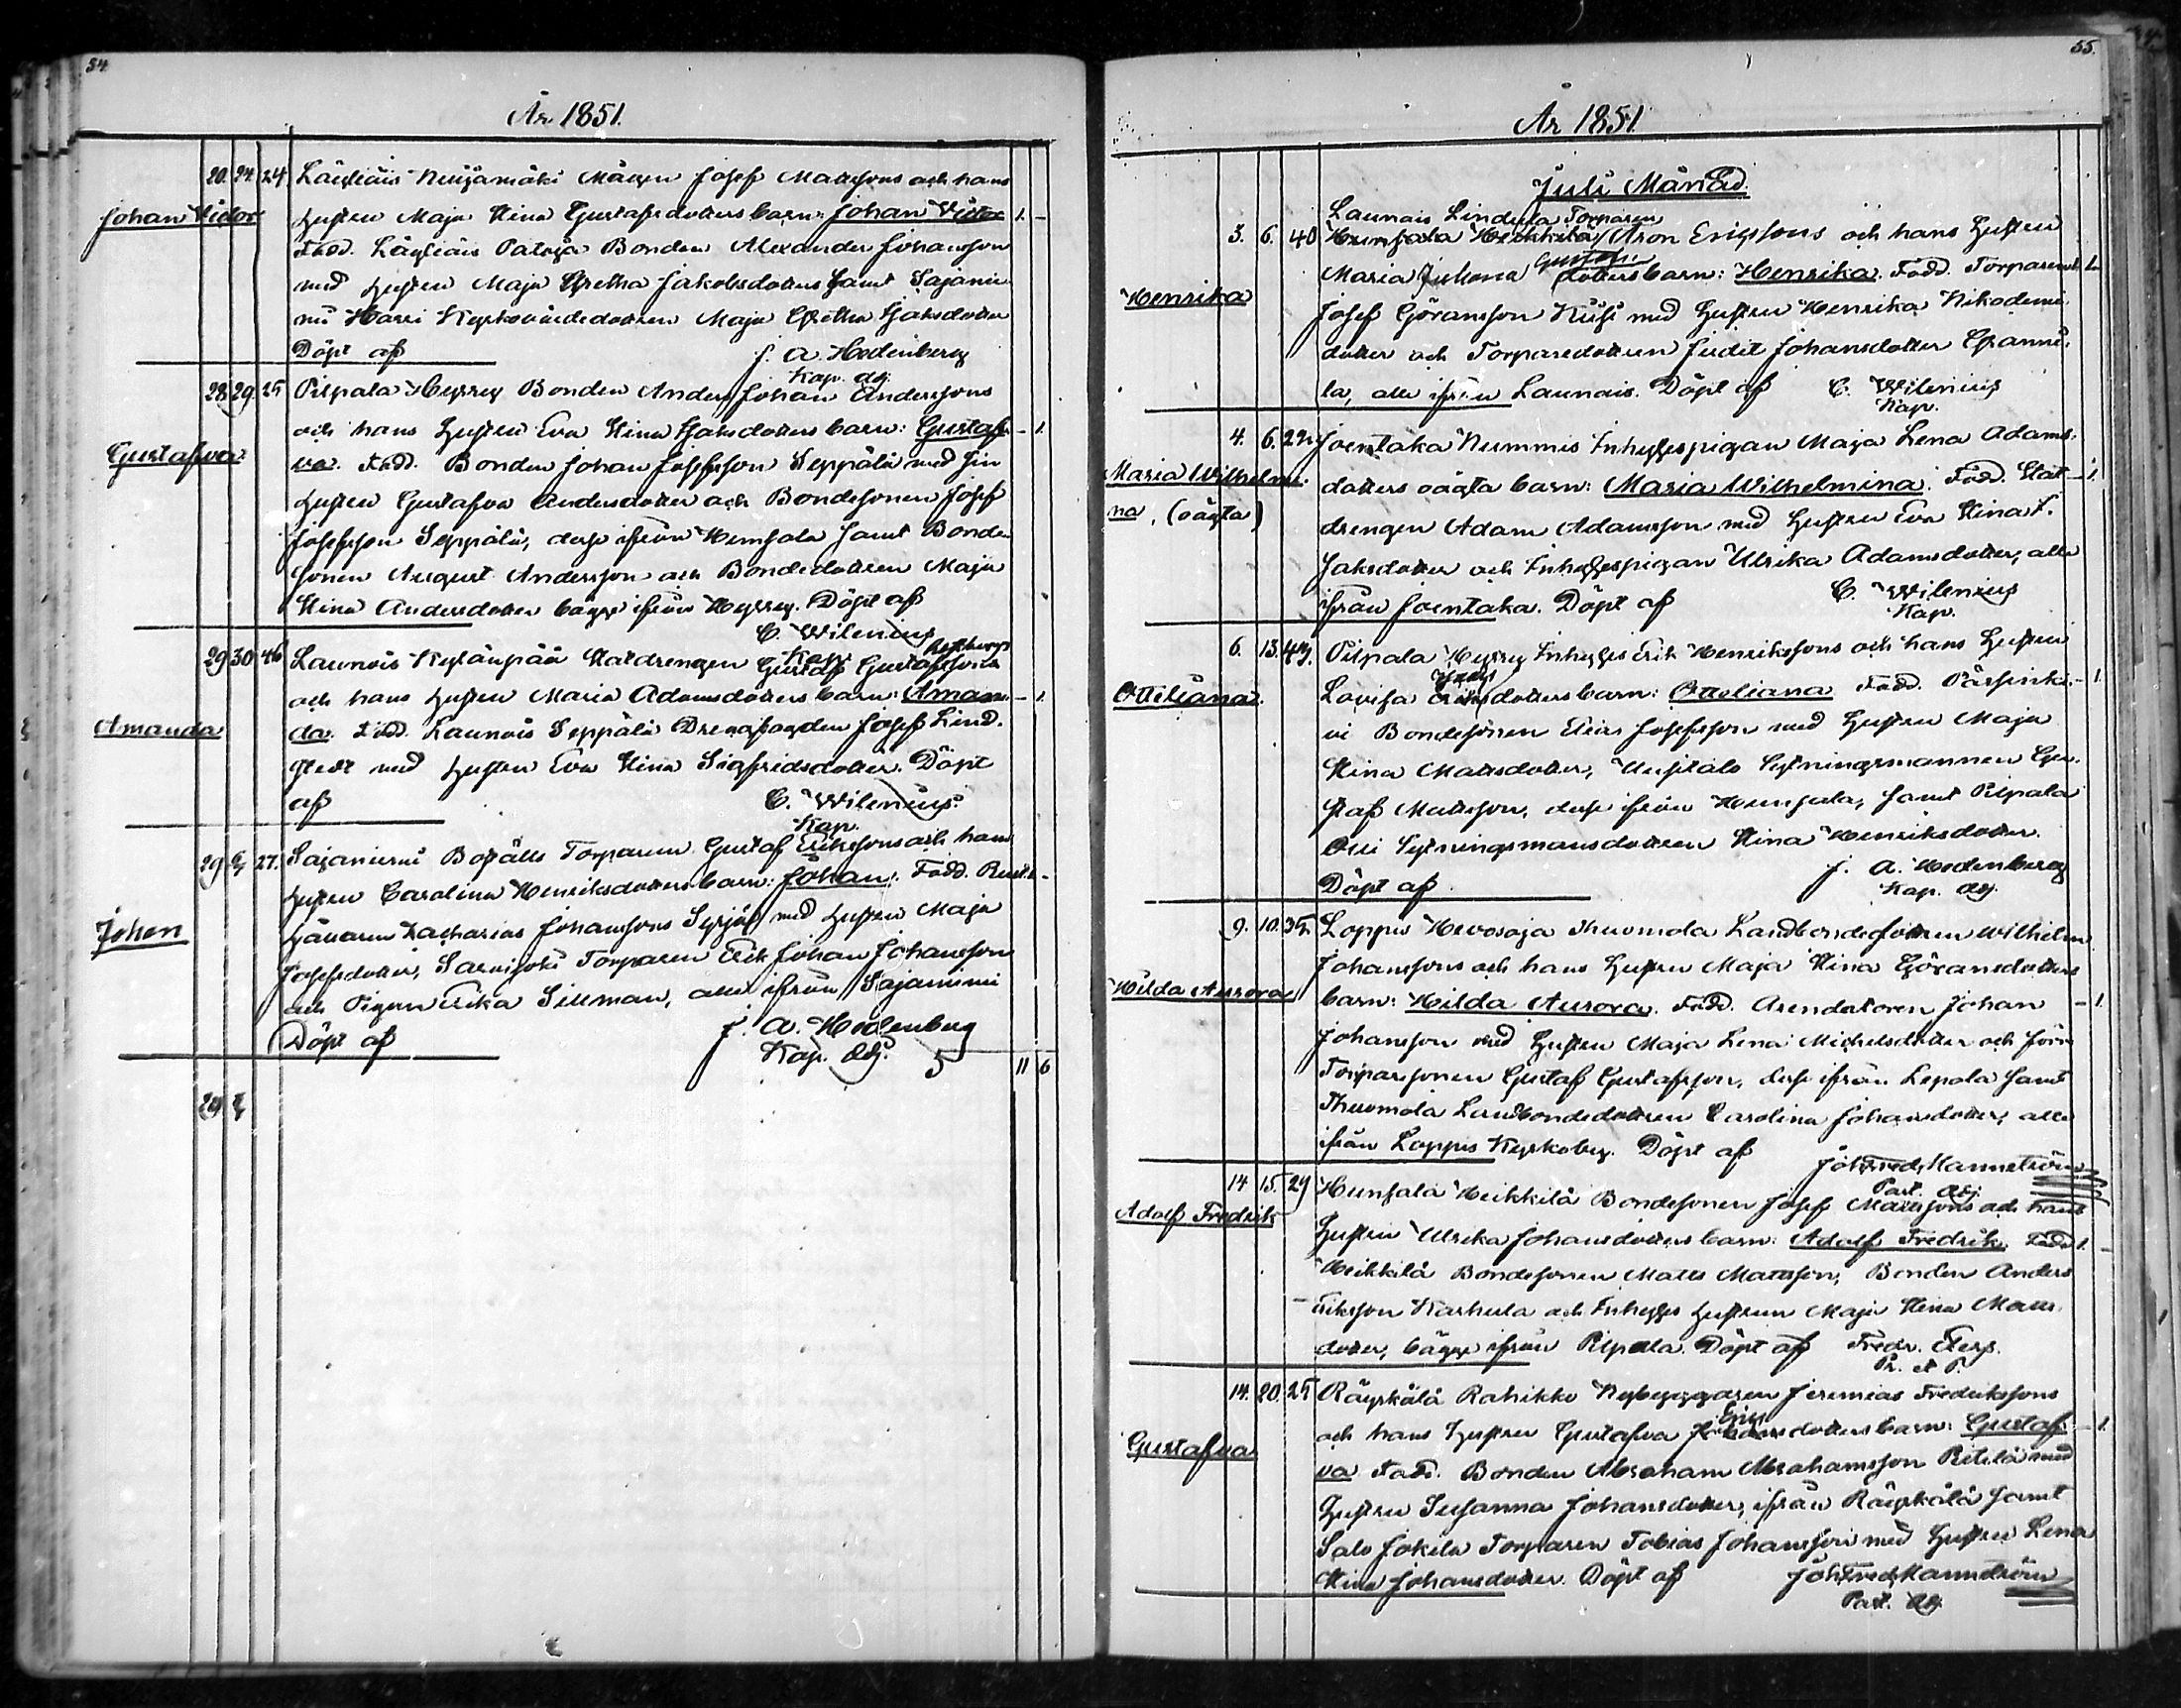 54.
År 1851.
20. 24. 24 Läyliäis Mågen Josef Mattssons och hans
Johan Victor
hustru Maja Stina Gustafsdotters barn: Johan Victor 1. –
Fadd. Läyliäis Bonden Alexander Johansson
med hustru Maja Gretha Jakobsdotter samt Sajanie-
mi Harri Maja Gretha Jaksdotter
Döpt af J. A. Hedenberg
Kap. Adj.
28 29. 25 Pilpala Heyrey Bonden Anders Johan Anderssons
och hans hustru Eva Stina Jaksdotters barn: Gustaf- – 1.
Gustafva
va. Fadd. Bonden Johan Josefsson Seppälä med sin
hustru Gustafva Andersdotter och Bondesonen Josef
Josefsson Seppälä, desse ifrån Hunsala samt Bonde-
sonen August Andersson och Bondedottren Maja
Stina Andersdotter bägge ifrån Heyrey. Döpt af
C. Wilenius
Kap.
29 30 46 Launois Kylänpää Statdrengen Gustaf Gustafssons
och hans hustru Maria Adamsdotters barn: Aman- – 1.
Amanda
da. Fadd. Launois Seppälä Drengfogden Josef Lind-
stedt med hustru Eva Stina Sigfridsdotter. Döpt
af C. Wilenius
Kap.
29 27. Sajaniemi Boställs Torparen Gustaf Erikssons och hans
hustru Carolina Henriksdotters barn: Johan. Fadd. Rust- 1. –
Johan
hållaren Zacharias Johansson Syrjä med hustru Maja
Josefsdotter, Sarvijoki Torparen Erik Johan Johansson
och Pigan Erika Sillman, alla ifrån Sajaniemi
Döpt af J. A. Hedenberg
Kap. Adj. 5 11 6
29
55.
År 1851
Juli Månad.
Launais Lindula Torparen
3. 6. 40 Hunsala Heikkilä Aron Ericssons och hans hustru
Gustafs
Maria Juliana dotters barn: Henrika. Fadd. Torparen 1.
Henrika
Josef Göransson med hustru Henrika Nikodemi-
dotter och Torparedottren Judit Johansdotter Granni-
la, alla ifrån Launais. Döpt af C. Wilenius
Kap.
4. 6. 22. Joentaka Nummis Inhysespigan Maja Lena Adams-
Maria Wilhelmi-
dotters oägta barn: Maria Wilhelmina. Fadd. Stat- – 1.
na, (oägta)
drengen Adam Adamsson med hustru Eva Stina
Jaksdotter och Inhysespigan Ulrika Adamsdotter, alla
ifrån Joentaka. Döpt af C. Wilenius
Kap.
6. 13. 43. Pilpala Heyrey Inhyses Erik Henrikssons och hans hustru
Lovisa dotters barn: Otteliana Fadd. Pärsinki- – 1.
Otteliana.
vi Bondesonen Elias Josefsson med hustru Maja
Stina Mattsdotter, Uusitalo Sytningsmannen Gu-
staf Mattsson, desse ifrån Hunsala, samt Pilpala
Sytningsmansdottren Stina Henriksdotter.
J. A. Hedenberg
Döpt af Kap. Adj.
9. 10. 35. Loppis Hevosoja Landbondesonen Wilhelm
Johanssons och hans hustru Maja Stina Göransdotters
Hilda Aurora
barn: Hilda Aurora. Fadd. Arendatoren Johan – 1.
Johansson med hustru Maja Lena Michelsdotter och
Torparesonen Gustaf Gustafsson, desse ifrån Lepola samt
Landbondedottren Carolina Johansdotter, alla
ifrån Loppis Kyrkoby. Döpt af Joh. Fred. Hannström
Past. Adj.
14 15. 29 Hunsala Heikkilä Bondesonen Josef Mattssons och hans
Adolf Fredrik
hustru Ulrika Johansdotters barn: Adolf Fredrik. Fadd. 1. –
Heikkilä Bondesonen Matts Mattsson, Bonden Anders
Eriksson Karhula och Inhyses hustrun Maja Stina Matts-
dotter, bägge ifrån Pilpala. Döpt af Fredr.
14. 20. 25 Räyskälä Rahikko Nybyggaren Jeremias Fredrikssons
Erics
och hans hustru Gustafva Johansdotters barn: Gustaf- – 1.
Gustafva
va Fadd. Bonden Abraham Abrahamsson Pietilä med
hustru Susanna Johansdotter, ifrån Räyskälä samt
Salo Jokela Torparen Tobias Johansson med hustru Lena
Stina Johansdotter. Döpt af Joh. Fred. Hannström
Past. Adj.